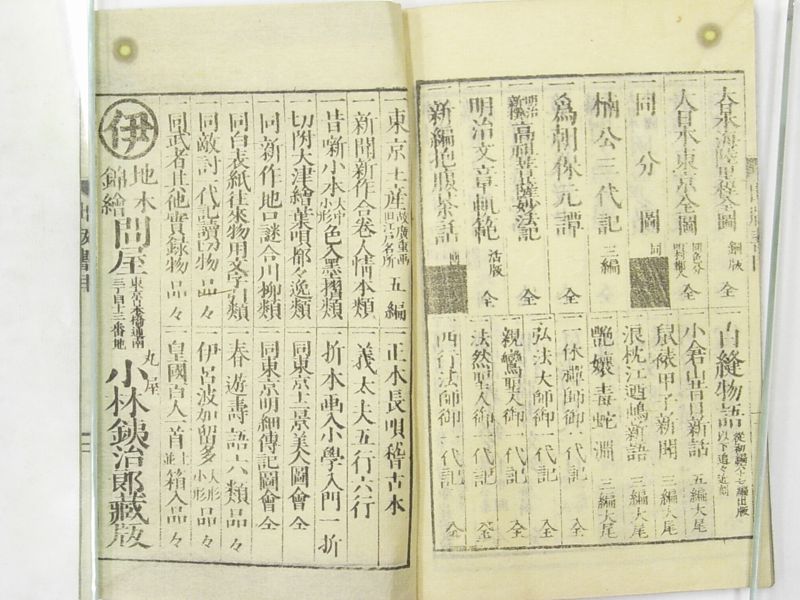 大日本海陸里程全圖 銅版 全
大日本東京全圖 全
同分圖 同
楠公三代記 三編
爲朝保元譚 全
高祖菩薩妙法記 全
明治文章軌範 活版 全
新編抱腹茶話
白縫物語
小倉山昔日新話 五編大尾
鼠猿甲子新聞 三編大尾
浪枕江迺嶋新語 三編大尾
艷孃毒蛇淵 三編大尾
一休禪師御一代記 全
弘法大師御一代記 全
親鸞聖人御一代記 全
法然聖人御一代記 全
西行法師御一代記 全
東京土産 五編
一新聞新作合巻人情本類
一昔噺小本 大中小形 色入墨摺類
一切附大津繪葉唄都々逸類
一同新作地口謎合川柳類
一同白表紙往來物用文字引類
一同敵討一代記讀切物 品々
一同武者其他實録物 品々
一正本長唄稽古本
一義太夫五行六行
一折本画入小學入門 一折
一同東京十二景美人圖會 全
一同東京明細傳記圖會 全
一春遊壽語六類 品々
一伊呂波加留多 大形小形 品々
一皇國百人一首 並上 箱入品々
伊
地本
錦繪
問屋
東京日本橋通南
三丁目十三番地
丸屋
小林鉄治郎藏版